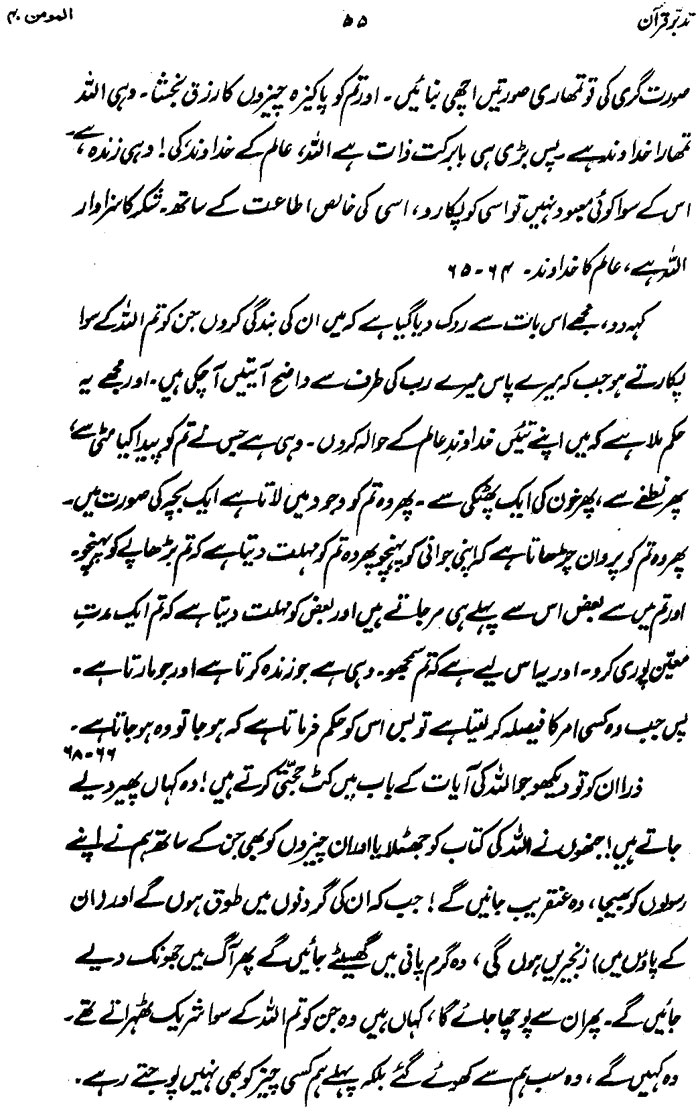 تدبرِ قرآن ۵۵ المومن ۴۰
صورت گری کی تو تمھاری صورتیں اچھی بنائیں۔ اور تم کو پاکیزہ چیزوں کا رزق بخشا۔ وہی اللہ
تمھارا خداوند ہے۔ پس بڑی ہی بابرکت ذات ہے اللہ، عالم کے خداوند کی! وہی زندہ ہے،
اس کے سوا کوئی معبود نہیں تو اسی کو پکارو، اسی کی خالص اطاعت کے ساتھ۔ شکر کا سزاوار
اللہ ہے، عالم کا خداوند۔ ۶۴-۶۵
کہہ دو، مجھے اس بات سے روک دیا گیا ہے کہ میں ان کی بندگی کروں جن کو تم اللہ کے سوا
پکارتے ہو جب کہ میرے پاس میرے رب کی طرف سے واضح آیتیں آ چکی ہیں۔ اور مجھے یہ
حکم ملا ہے کہ میں اپنے تئیں خداوندِ عالم کے حوالہ کروں۔ وہی ہے جس نے تم کو پیدا کیا مٹی سے،
پھر نطفے سے، پھر خون کی ایک پھٹکی سے۔ پھر وہ تم کو وجود میں لاتا ہے ایک بچہ کی صورت میں۔
پھر وہ تم کو پروان چڑھاتا ہے کہ اپنی جوانی کو پہنچو پھر وہ تم کو مہلت دیتا ہے کہ تم بڑھاپے کو پہنچو۔
اور تم میں سے بعض اس سے پہلے ہی مر جاتے ہیں اور بعض کو مہلت دیتا ہے کہ تم ایک مدتِ
معیّن پوری کرو۔ اور یہ اس لیے ہے کہ تم سمجھو۔ وہی ہے جو زندہ کرتا ہے اور جو مارتا ہے۔
پس جب وہ کسی امر کا فیصلہ کر لیتا ہے تو بس اس کو حکم فرماتا ہے کہ ہو جا تو وہ ہو جاتا ہے۔ ۶۶-۶۸
ذرا ان کو تو دیکھو جو اللہ کی آیات کے باب میں کٹ حجتی کرتے ہیں! وہ کہاں پھیر دیے
جاتے ہیں! جنھوں نے اللہ کی کتاب کو جھٹلایا اور ان چیزوں کو بھی جن کے ساتھ ہم نے اپنے
رسولوں کو بھیجا، وہ عنقریب جانیں گے! جب کہ ان کی گردنوں میں طوق ہوں گے اور (ان
کے پاؤں میں) زنجیریں ہوں گی، وہ گرم پانی میں گھسیٹے جائیں گے پھر آگ میں جھونک دیے
جائیں گے۔ پھر ان سے پوچھا جائے گا، کہاں ہیں وہ جن کو تم اللہ کے سوا شریک ٹھہراتے تھے۔
وہ کہیں گے، وہ سب ہم سے کھوئے گئے بلکہ پہلے ہم کسی چیز کو بھی نہیں پوجتے رہے۔